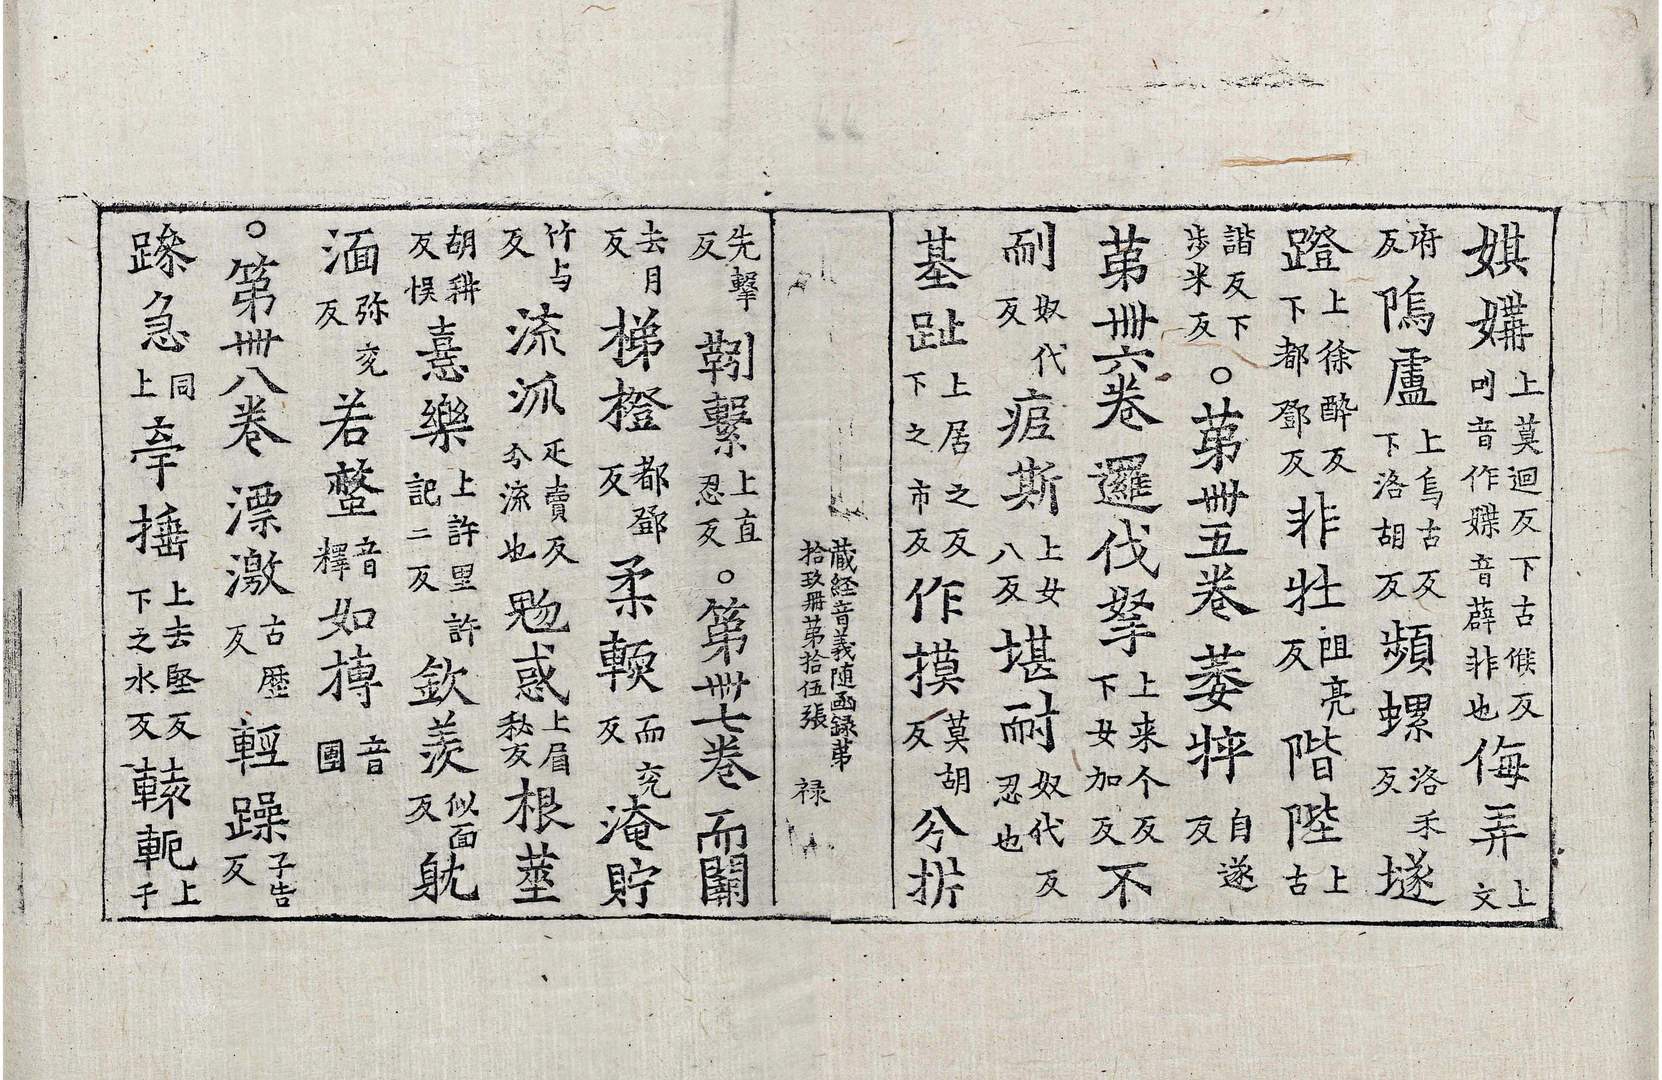 媒媾上莫迴反下古候反𠮟音作媟音薜非也侮弄上文
府反隖廬上烏古反下洛胡反蘋螺洛禾反墜
蹬上徐酔反下都鄧反非壮阻亮反階陛上古
諧反下歩米反○苐丗五卷萎㸬自遂反
苐丗六卷邏伐拏上来个反下女加反不
耐奴代反㾄斯上女八反堪耐奴代反忍也
基趾上居之反下之市反作摸莫胡反分㭊
蔵経音義随函録苐
拾玖冊苐拾伍張 禄
先擊反靷繫上直忍反○第丗七卷而闢
去月反梯橙都鄧反柔輭而兖反淹貯
竹与反流𣲖疋賣反分流也魅惑上眉秘反根莖
胡耕反悮憙樂上許里許記二反欽羨似面反躭
湎弥兖反若螫音釋如摶音團
○第丗八卷漂激古歷反輕躁子告反
躁急同上牽捶上去堅反下之水反轅軛上千